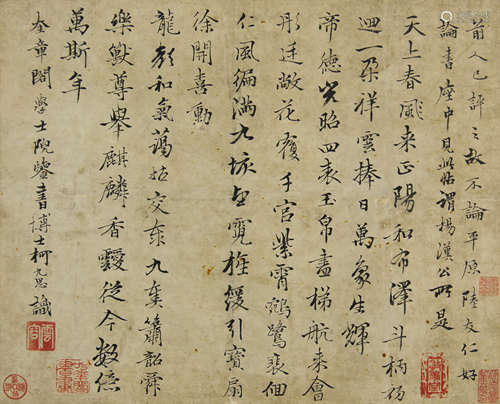 前人已評之故不論平原陸友仁好
論書座中見此帖謂楊漢公所是
天上春風来正陽和布澤斗柄初
迴一朵祥雲捧日萬象生輝
帝德光昭四表玉帛盡梯航来會
彤廷敞花覆千官紫霄鵷鷺裴徊
仁風徧滿九垓望霓旌緩引寶扇
徐開喜動
龍顏和氣藹交泰九奏簫韶舜
樂獸尊舉麒麟香靉從今數億
萬斯年
奎章閣學士院鑒書博士柯九思識